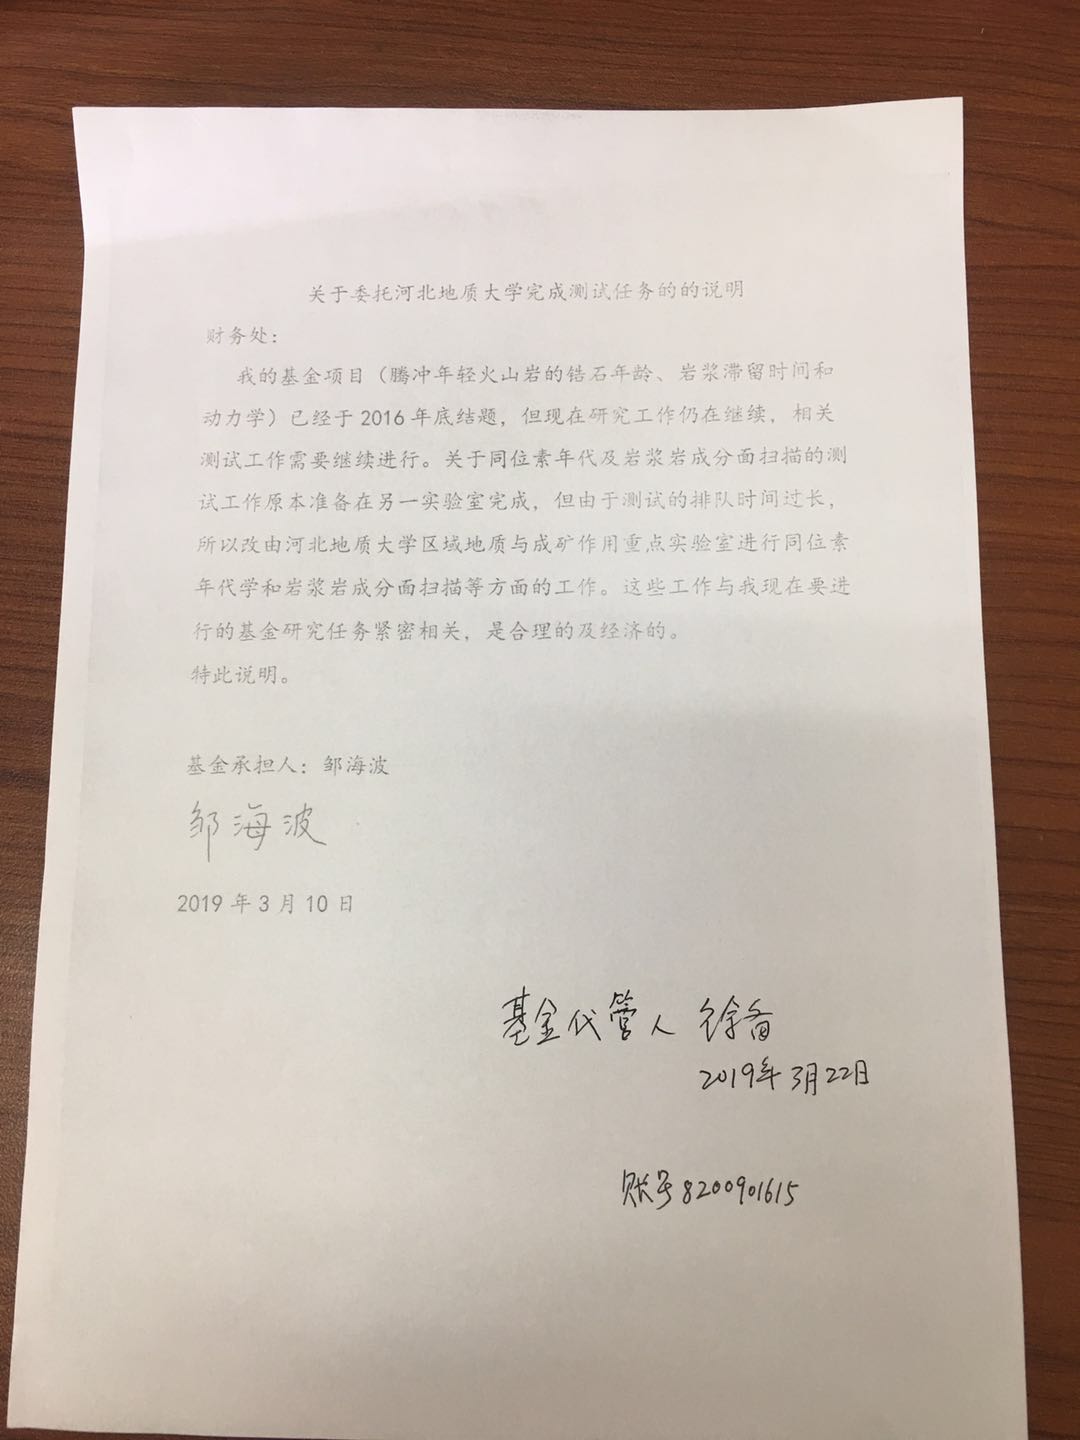 关于委托河北地质大学完成测试任务的的说明
财务处：
我的基金项目（腾冲年轻火山岩的锆石年龄、岩浆滞留时间和
动力学）已经于 2016 年底结题，但现在研究工作仍在继续，相关
测试工作需要继续进行。关于同位素年代及岩浆岩成分面扫描的测
试工作原本准备在另一实验室完成，但由于测试的排队时间过长，
所以改由河北地质大学区域地质与成矿作用重点实验室进行同位素
年代学和岩浆岩成分面扫描等方面的工作。这些工作与我现在要进
行的基金研究任务紧密相关，是合理的及经济的。
特此说明。
基金承担人：邹海波
邹海波
2019 年 3 月 10 日
基金代管人 徐备
2019年3月22日
账号8200901615